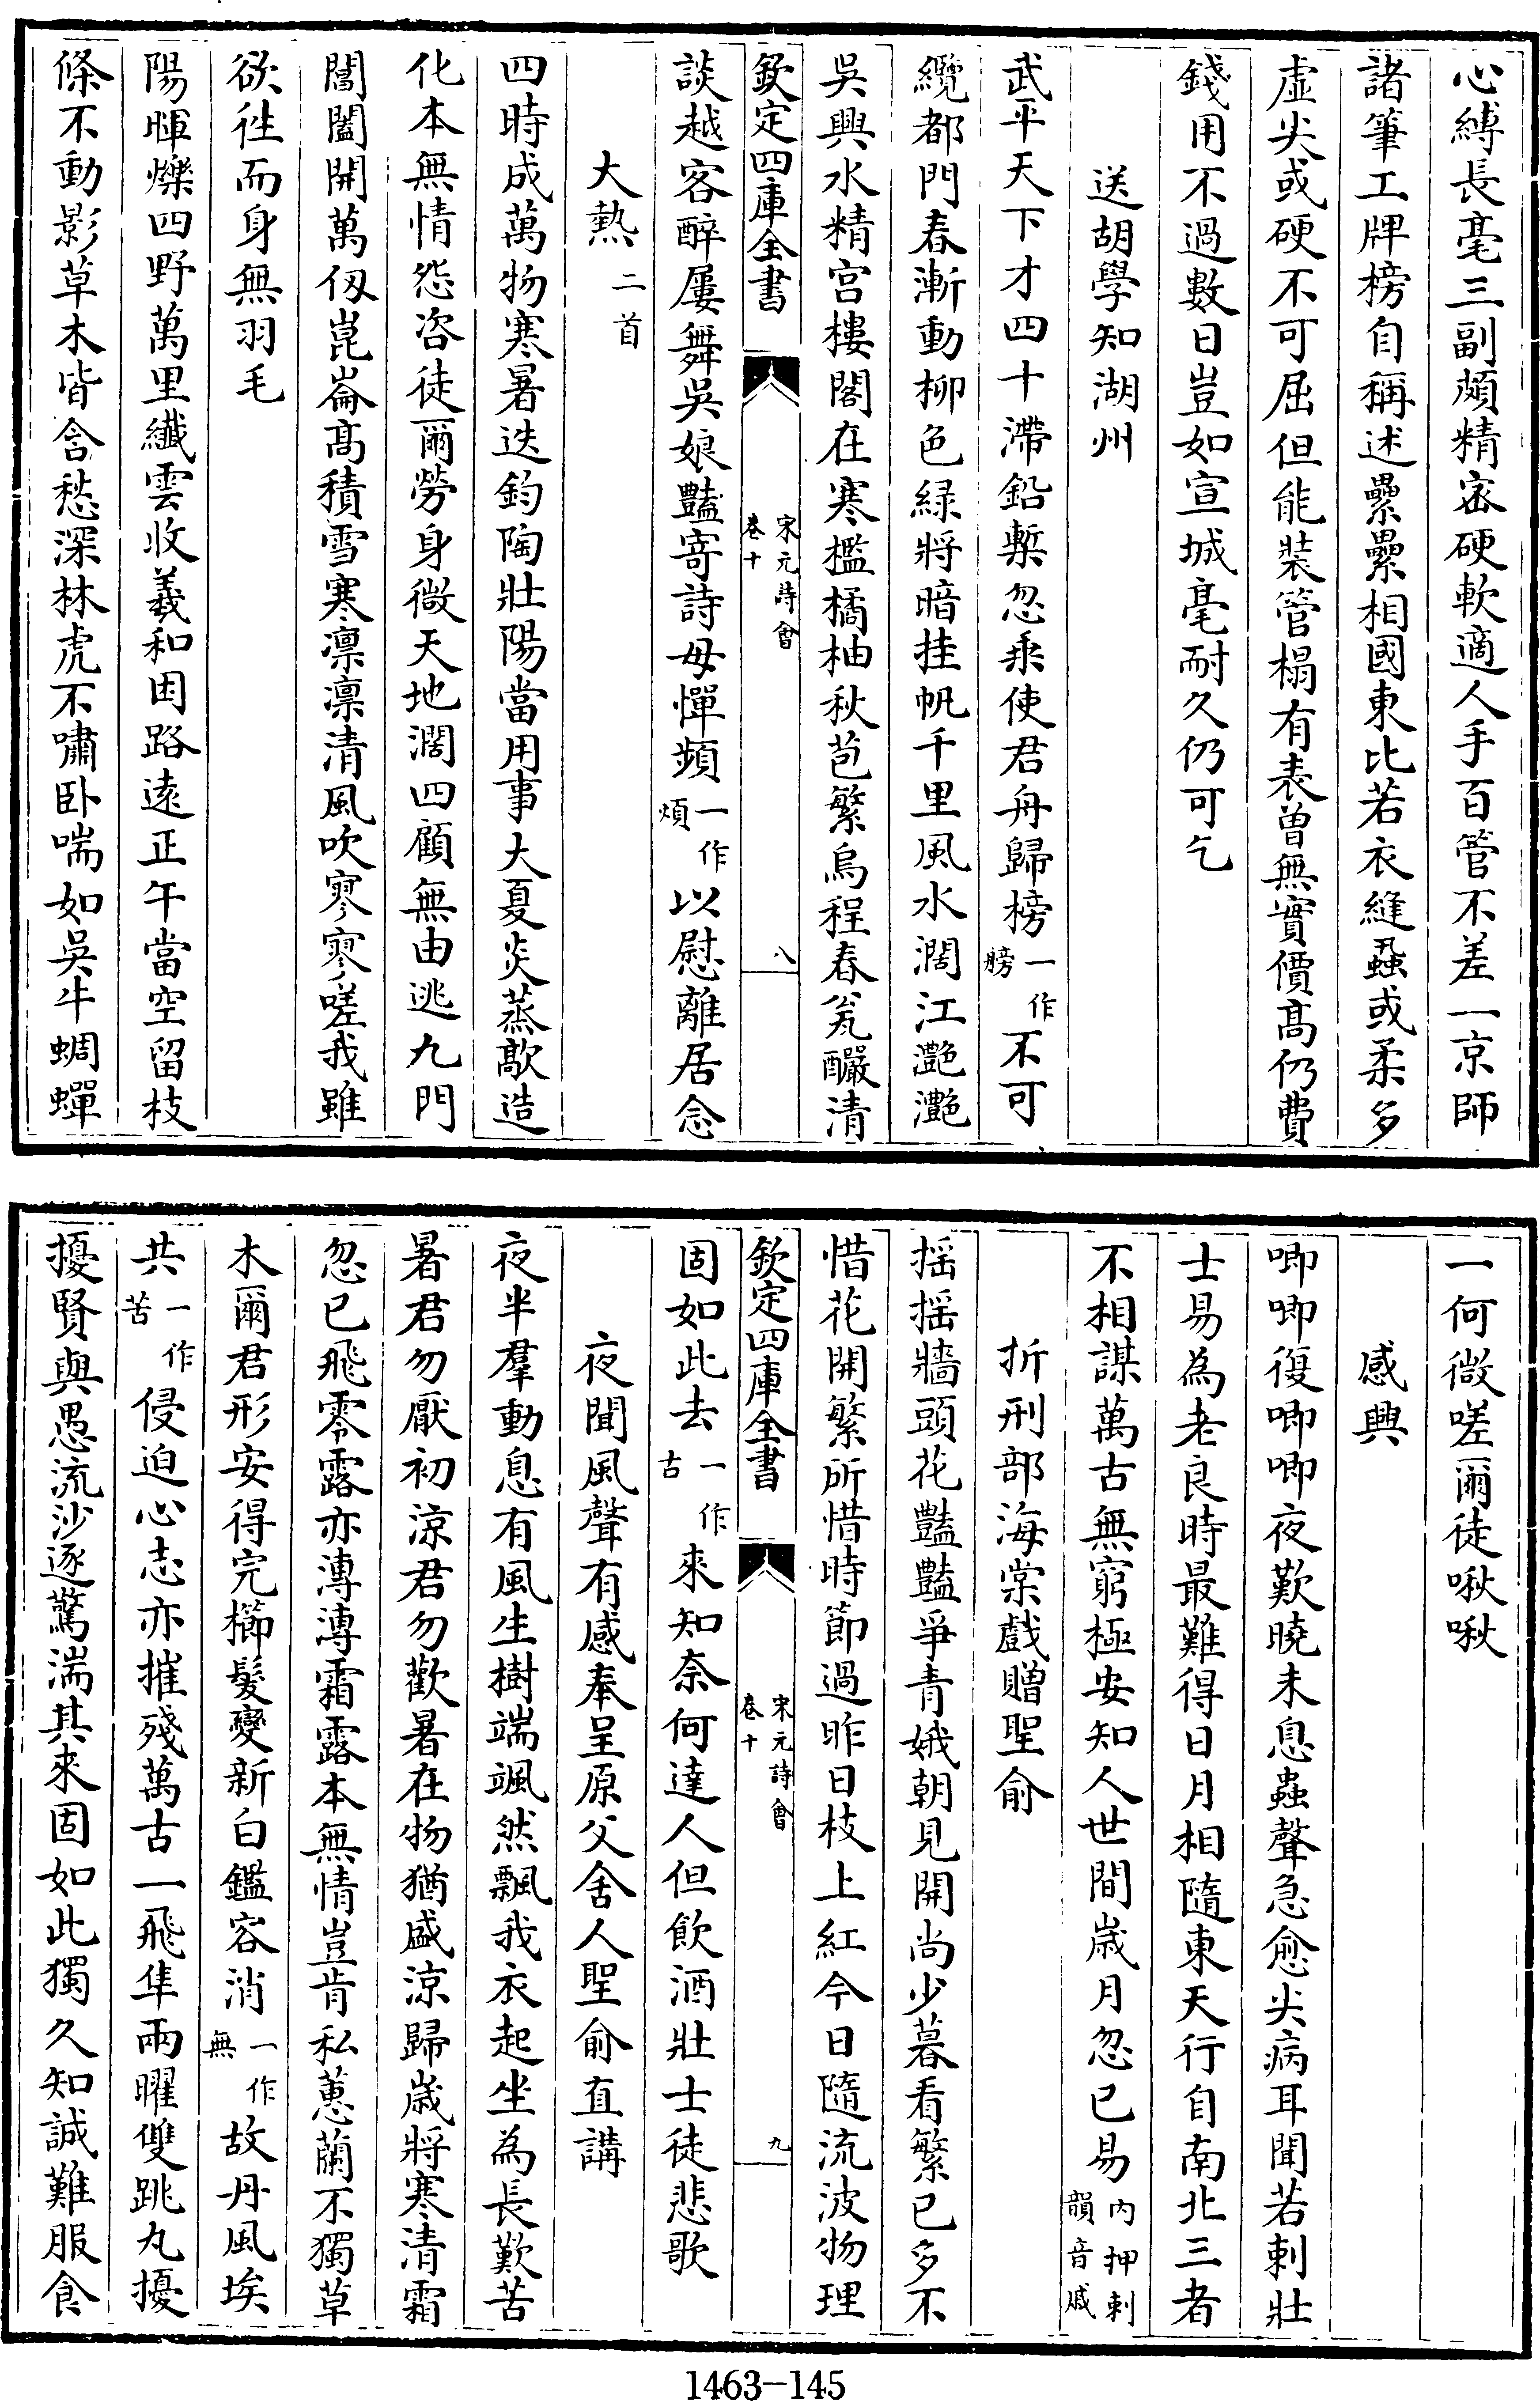 心縳長毫三副頗精宻硬軟適人手百管不差一京師
諸筆工牌榜自稱述纍纍相國東比若衣縫蝨或柔多
虛尖或硬不可屈但能裝管榻有表曽無實價髙仍費
錢用不過數日豈如宣城毫耐久仍可乞
送胡學知湖州
武平天下才四十滯鉛槧忽乘使君舟歸榜一作艕不可
纜都門春漸動柳色緑將暗挂帆千里風水濶江灔灔
吳興水精宫樓閣在寒檻橘柚秋苞繁烏程春瓮釅清
欽定四庫全書
宋元詩會
卷十
八
談越客醉屢舞吳娘豔寄詩毋憚頻一作煩以慰離居念
大熱二首
四時成萬物寒暑迭鈞陶壯陽當用事大夏炎蒸歊造
化本無情怨咨徒爾勞身微天地濶四顧無由逃九門
閶闔開萬仭崑崙髙積雪寒凛凛清風吹寥寥嗟我雖
欲徃而身無羽毛
陽暉爍四野萬里纎雲收羲和困路逺正午當空留枝
條不動影草木皆含愁深林虎不嘯卧喘如吳牛蜩蟬
一何微嗟爾徒啾啾
感興
唧唧復唧唧夜歎曉未息蟲聲急愈尖病耳聞若刺壯
士易為老良時最難得日月相隨東天行自南北三者
不相謀萬古無窮極安知人世間嵗月忽已易内押刺韻音戚
折刑部海棠戲贈聖俞
揺揺牆頭花豔豔爭青娥朝見開尚少暮看繁已多不
惜花開繁所惜時節過昨日枝上紅今日隨流波物理
欽定四庫全書
宋元詩會
卷十
九
固如此去一作古來知奈何達人但飲酒壯士徒悲歌
夜聞風聲有感奉呈原父舍人聖俞直講
夜半羣動息有風生樹端颯然飄我衣起坐為長歎苦
暑君勿厭初涼君勿歡暑在物猶盛涼歸嵗將寒清霜
忽已飛零露亦漙漙霜露本無情豈肯私蕙蘭不獨草
木爾君形安得完櫛髮變新白鑑容消一作無故丹風埃
共一作苦侵迫心志亦摧殘萬古一飛隼兩曜雙跳丸擾
擾賢與愚流沙逐驚湍其來固如此獨久知誠難服食
1463-145